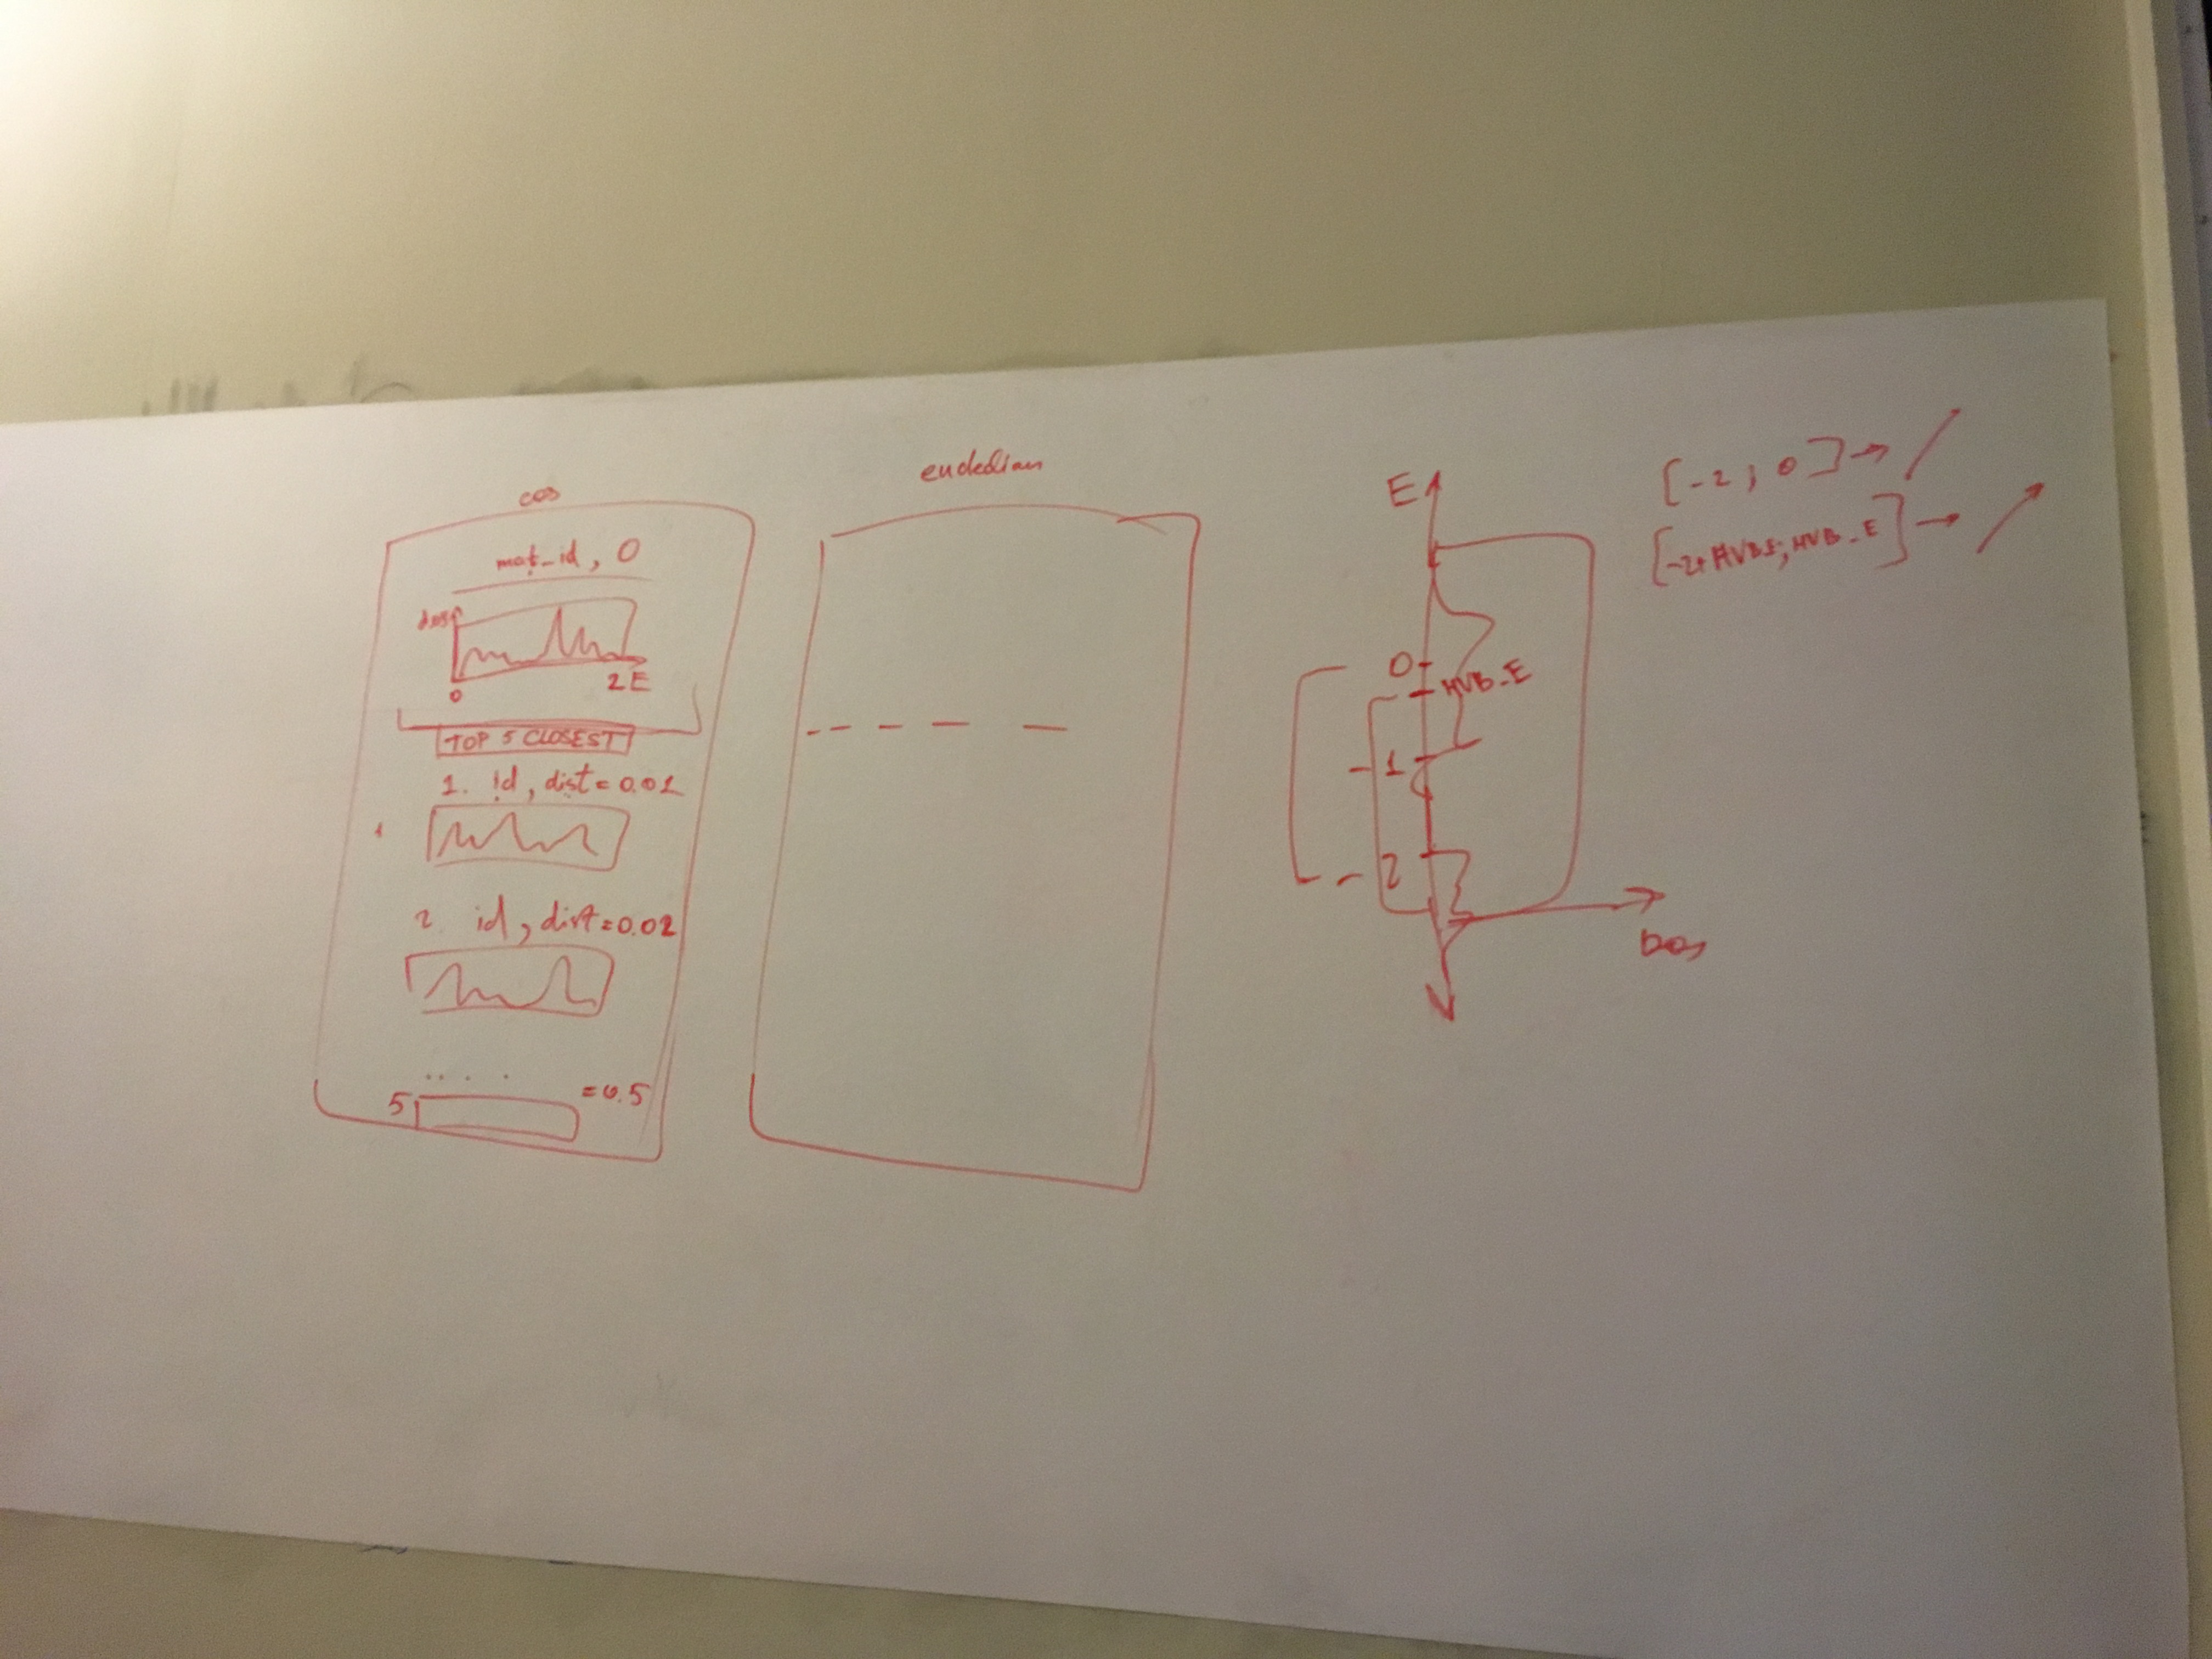 cos
mat_id, 0
dos
0
2 E
TOP 5 CLOSEST
1. id, dist = 0.01
1
2. id, dist = 0.02
.. . .
5
= 0.5
euclidian
E
0
HVB_E
- 1
- 2
DOS
[-2; 0] →
[-2+HVB_E; HVB_E] →